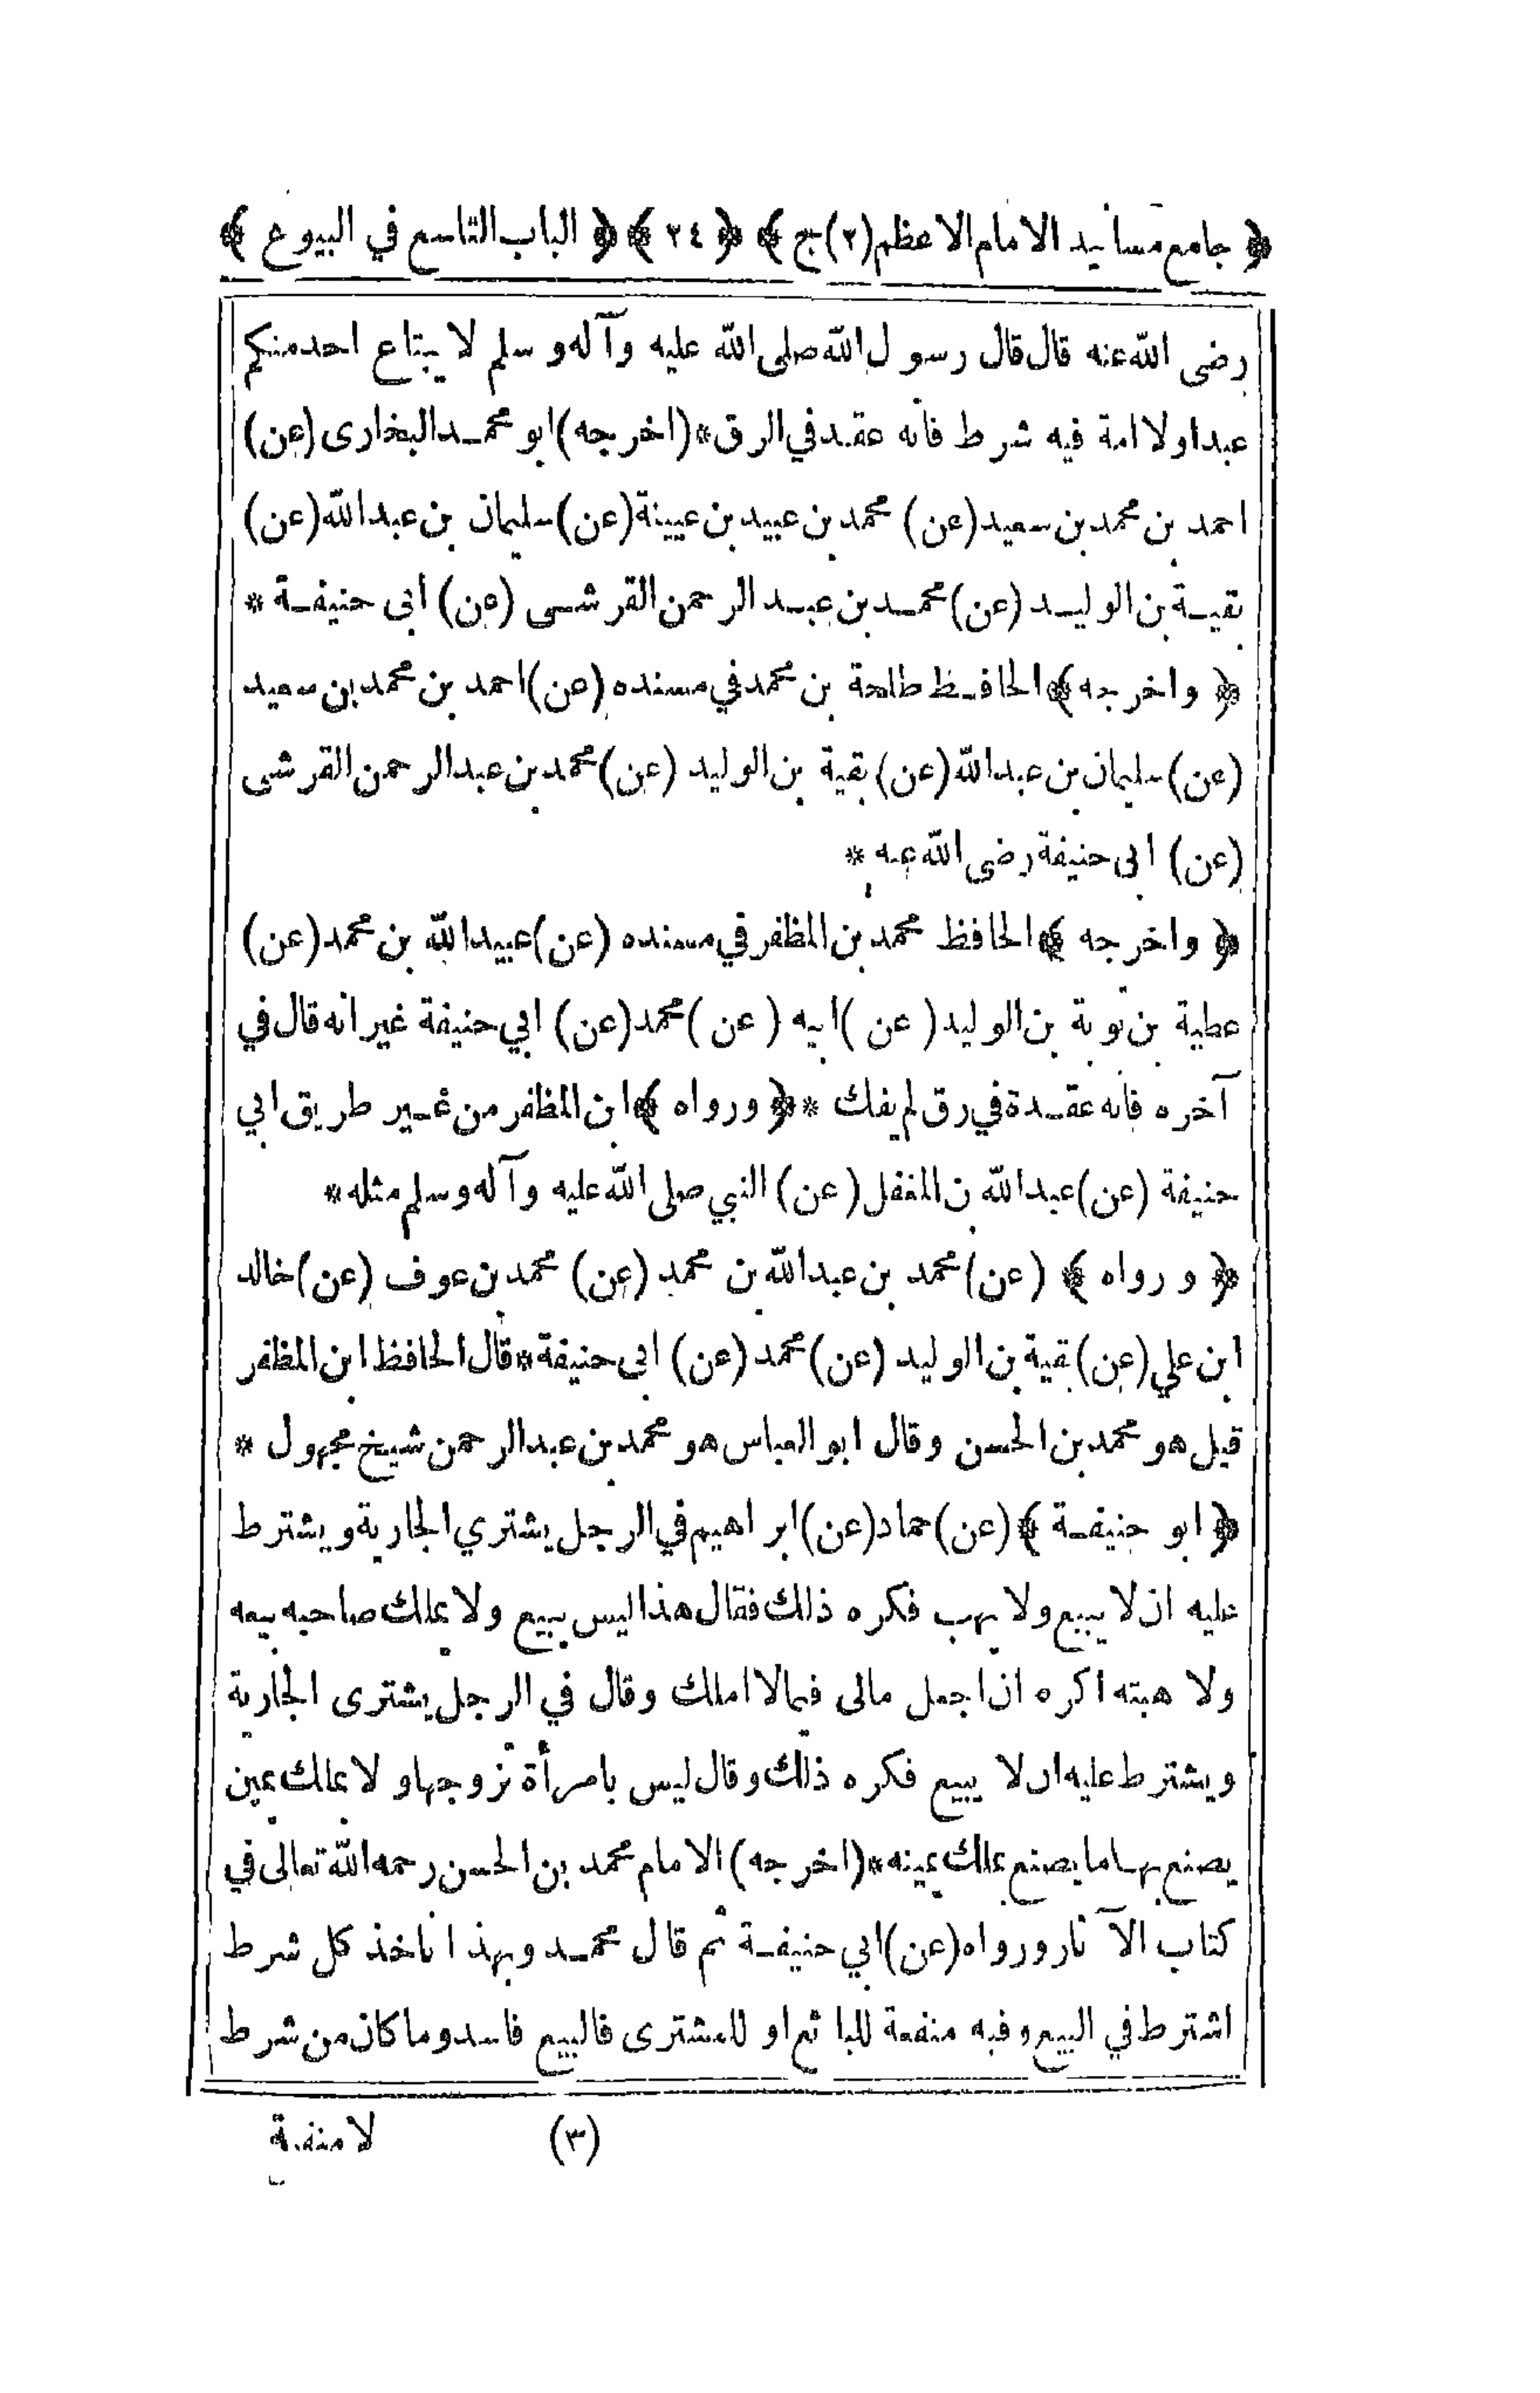 ﴿ جامع مسانيد الامام الاعظم (٢) ج ﴾ ﴿ ٢٤ ﴾ ﴿ الباب التاسع في البيوع ﴾
رضى الله عنه قال قال رسول الله صلى الله عليه وآله وسلم لا يبتاع احد منكم
عبدا ولا امة فيه شرط فانه عقد في الرق * (اخرجه) ابو محمد البخارى (عن)
احمد بن محمد بن سعيد (عن) محمد بن عبيد بن عيينة (عن) سليمان بن عبد الله (عن)
بقية بن الوليد (عن) محمد بن عبد الرحمن القرشى (عن) ابى حنيفة *
﴿ واخرجه ﴾ الحافظ طلحة بن محمد في مسنده (عن) احمد بن محمد بن سعيد
(عن) سليمان بن عبد الله (عن) بقية بن الوليد (عن) محمد بن عبد الرحمن القرشى
(عن) ابى حنيفة رضى الله عنه *
﴿ واخرجه ﴾ الحافظ محمد بن المظفر في مسنده (عن) عبيد الله بن محمد (عن)
عطية بن توبة بن الوليد (عن) ابيه (عن) محمد (عن) ابي حنيفة غير انه قال في
آخره فانه عقدة في رق لم يفك * ﴿ ورواه ﴾ ابن المظفر من غير طريق ابي
حنيفة (عن) عبد الله بن المغفل (عن) النبي صلى الله عليه وآله وسلم مثله *
﴿ ورواه ﴾ (عن) محمد بن عبد الله بن محمد (عن) محمد بن عوف (عن) خالد
ابن علي (عن) بقية بن الوليد (عن) محمد (عن) ابى حنيفة * قال الحافظ ابن المظفر
قيل هو محمد بن الحسن وقال ابو العباس هو محمد بن عبد الرحمن شيخ مجهول *
﴿ ابو حنيفة ﴾ (عن) حماد (عن) ابراهيم في الرجل يشتري الجارية ويشترط
عليه ان لا يبيع ولا يهب فكره ذلك فقال هذا ليس ببيع ولا يملك صاحبه بيعه
ولا هبته اكره ان اجعل مالى فيما لا املك وقال في الرجل يشترى الجارية
ويشترط عليه ان لا يبيع فكره ذلك وقال ليس بامرأة تزوجها ولا بملك يمين
يصنع بها ما يصنع بملك يمينه * (اخرجه) الامام محمد بن الحسن رحمه الله تعالى في
كتاب الآثار ورواه (عن) ابي حنيفة ثم قال محمد وبهذا ناخذ كل شرط
اشترط في البيع وفيه منفعة للبائع او للمشترى فالبيع فاسد وما كان من شرط
(٣) لا منفعة